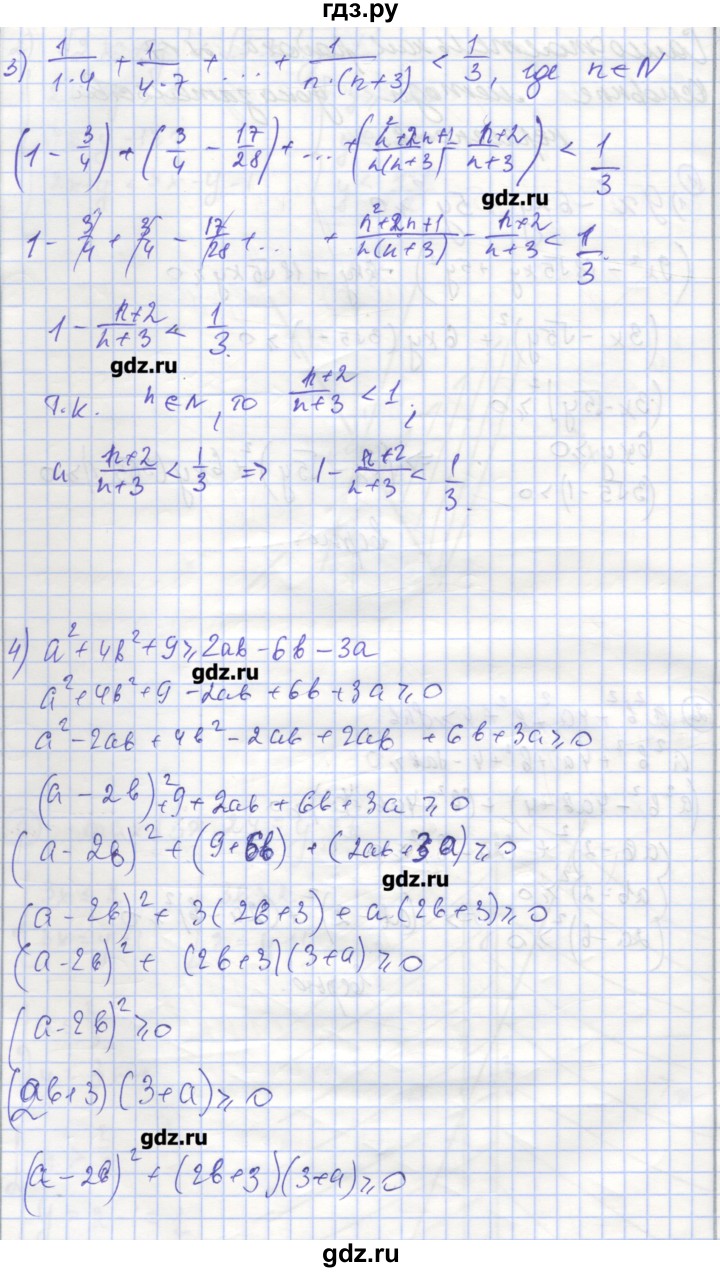 гдз.ру
3) 1/(1·4) + 1/(4·7) + ... + 1/(n·(n+3)) < 1/3, где n∈N
(1 - 3/4) + (3/4 - 17/28) + ... + ((n²+2n+1)/(n(n+3)) - (n+2)/(n+3)) < 1/3
gdz.ru
1 - 3/4 + 3/4 - 17/28 + ... + (n²+2n+1)/(n(n+3)) - (n+2)/(n+3) < 1/3.
1 - (n+2)/(n+3) < 1/3.
gdz.ru
Т.к. n∈N, то (n+2)/(n+3) < 1,
а (n+2)/(n+3) < 1/3 => 1 - (n+2)/(n+3) < 1/3.
4) a²+4b²+9 ⩾ 2ab-6b-3a
gdz.ru
a²+4b²+9-2ab+6b+3a ⩾ 0
a²-2ab+4b²-2ab+2ab+6b+3a ⩾ 0
(a-2b)²+9+2ab+6b+3a ⩾ 0
(a-2b)²+(9+6b)+(2ab+3a) ⩾ 0
gdz.ru
(a-2b)²+3(2b+3)+a(2b+3) ⩾ 0
(a-2b)²+(2b+3)(3+a) ⩾ 0
(a-2b)² ⩾ 0
(2b+3)(3+a) ⩾ 0
gdz.ru
(a-2b)²+(2b+3)(3+a) ⩾ 0
gdz.ru